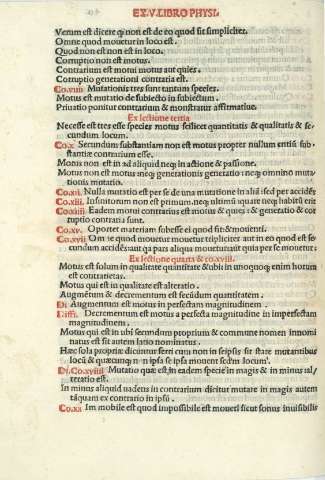 EX.V.LIBRO PHYSI.
Verum est dicere qi non est de eo quod sit simpliciter.
Omne quod mouetur in loco est.
Quod non est non est in loco.
Corruptio non est motus.
Contrarium est motui motus aut quies.
Corruptio generationi contraria est.
Co.viii Mutationis tres sunt tantum species.
Motus est mutatio de subiecto in subiectum.
Priuatio ponitur contraria & monstratur affirmatiue.
Ex lectione tertia
Necesse est tres esse species motus scilicet quantitatis & qualitatis & se
cundum locum.
Co.x Secundum substantiam non est motus propter nullum entis sub
stantiæ contrarium esse.
Motus non est in ad aliquid neq; in actione & passione.
Motus non est motus neq; generationis generatio neq; omnino mu
tationis mutatio.
Co.xi. Nulla mutatio est per se de una mutatione in aliã sed per accidẽs
Co.xiii. Infinitorum non est primum.neq; ultimũ quare neq; habitũ erit
Co.xiiii Eadem motui contrarius est motus & quies : & generatio & cor
ruptio contraria sunt.
Co.xv. Oportet materiam subesse ei quod fit & mouenti.
Co.xvii Om̃e quod mouetur mouetur tripliciter aut in eo quod est se
cundum accidẽs aut qa pars aliqua mouetur aut quia per se mouetur:
Ex lectione quarta & co.xviii.
Motus est solum in qualitate quantitate & ubi: in unoquoq; enim horum
est contrarietas.
Motus qui est in qualitate est alteratio.
Augmẽtum & decrementum est secundum quantitatem.
Di Augmentum est motus in perfectam magnitudinem
Diffi. Decrementum est motus a perfecta magnitudine in imperfectam
magnitudinem.
Motus qui est in ubi: secundum proprium & commune nomen innomi
natus est sit autem latio nominatus.
Hæc sola proprie dicuntur ferri cum non in seipsis sit stare mutantibus
locũ & quæcunq; non ipsa se ipsa mouent secundum locum.
Di.Co.xviiii Mutatio quæ est in eadem specie in magis & in minus
teratio est.
In minus aliquid uadens in contrarium dicitur mutare in magis autem
tãquam ex contrario in ipsũ.
Co.xx Immobile est quod impossibile est moueri sicut sonus inuisibilis